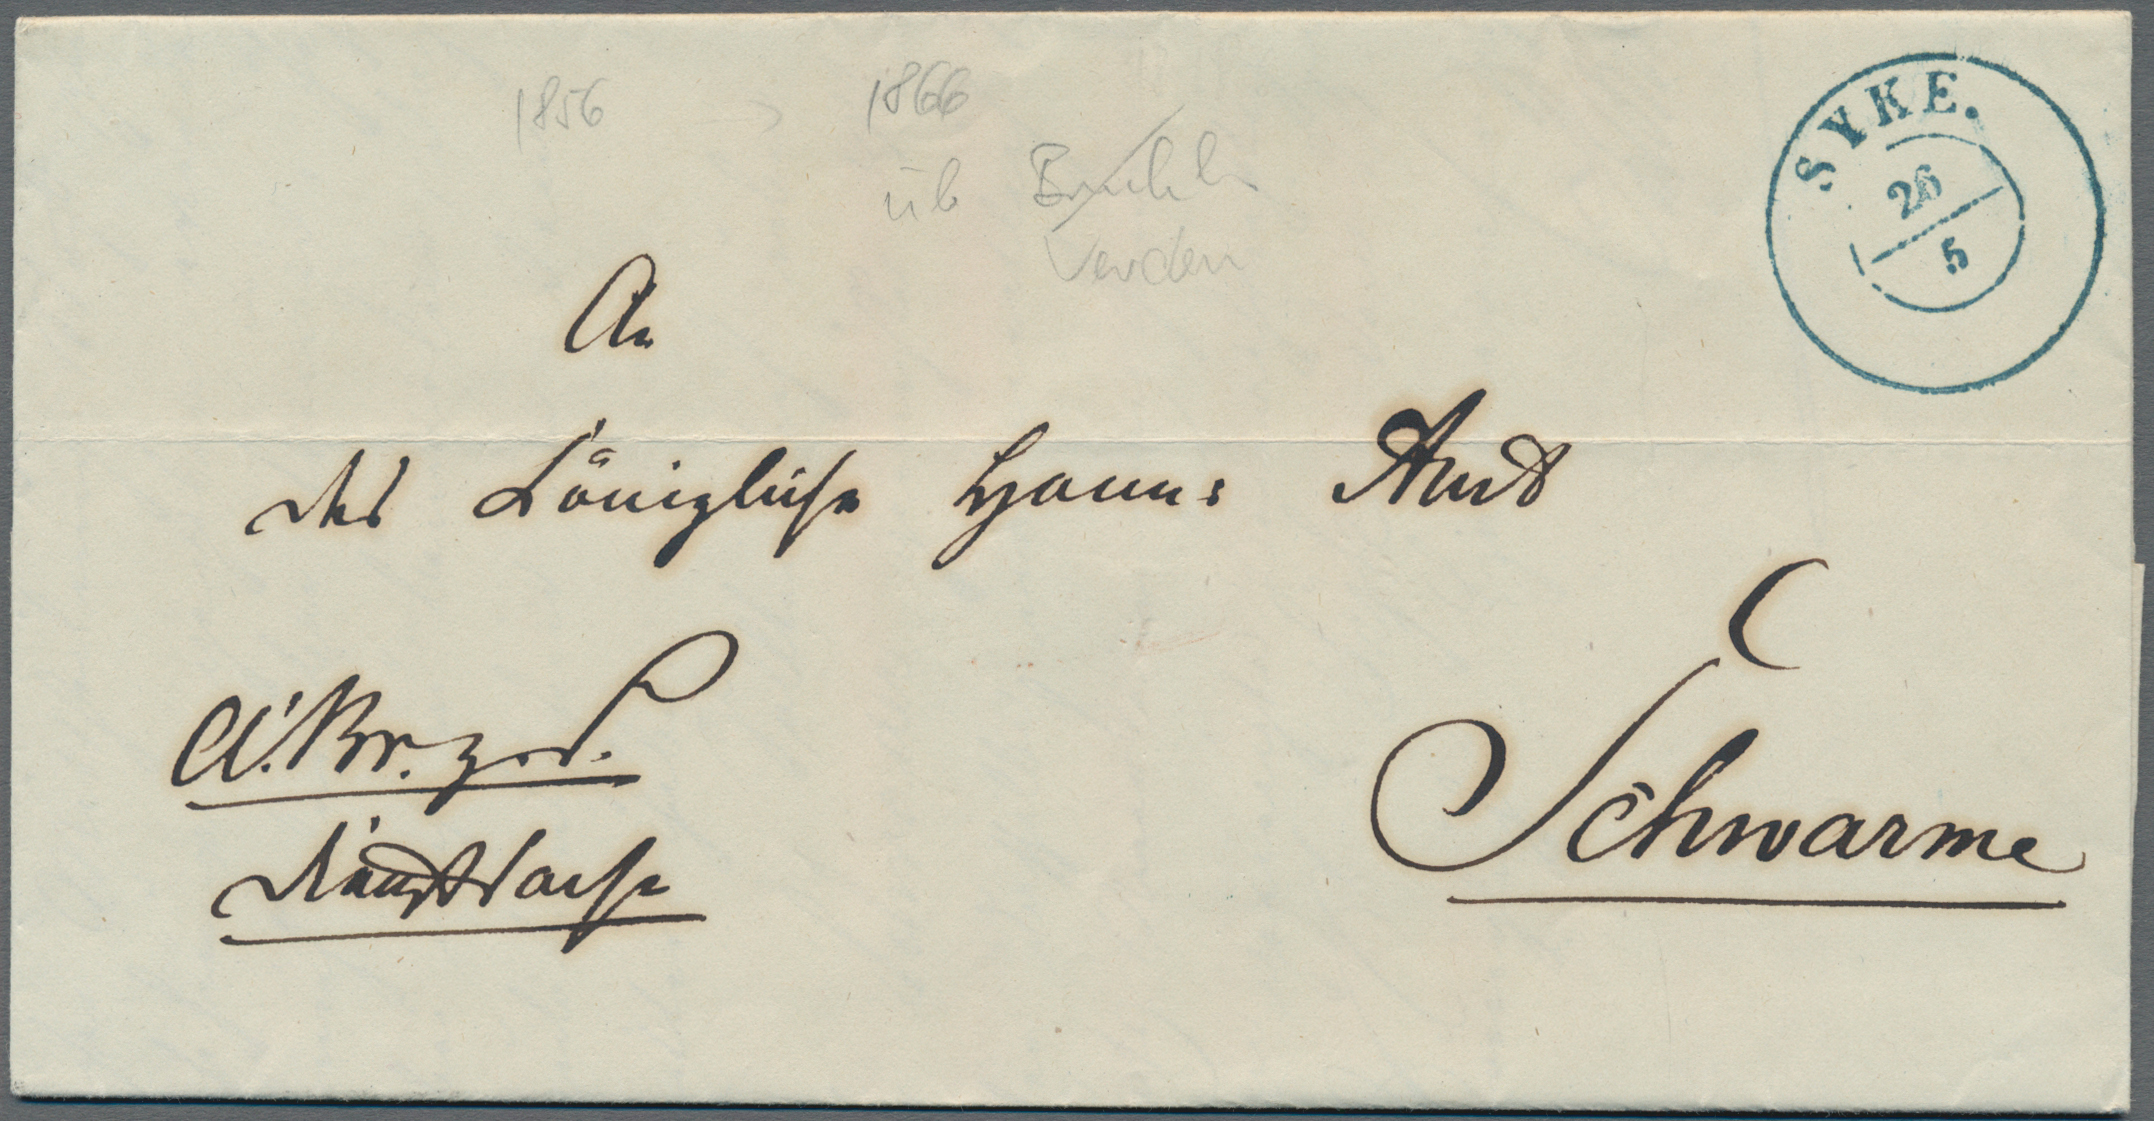 1856 1866
üb Bruchh
Verden
SYKE.
26
5
An
das Königliche Hann: Amt
Schwarme
Dienstsache